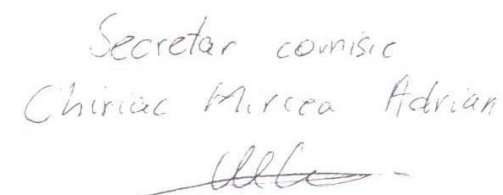 Secretar comisie
Chiriac Mircea Adrian